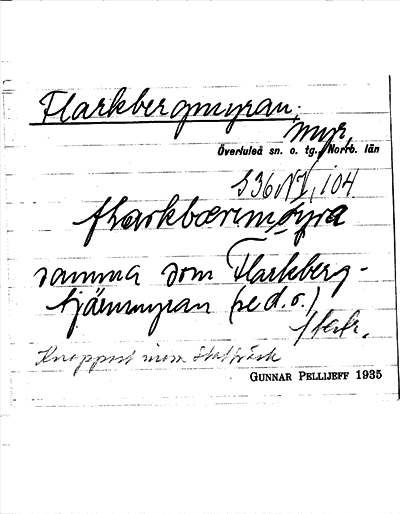 Flarkbergmyran.
myr,
Överluleå sn. o. tg., Norrb. län
S36 NV, 104
flarkbærimɷyra
samma som Flarkberg-
tjärnmyran (se d. o.)
Knappast inom
GUNNAR PELLIJEFF 1935